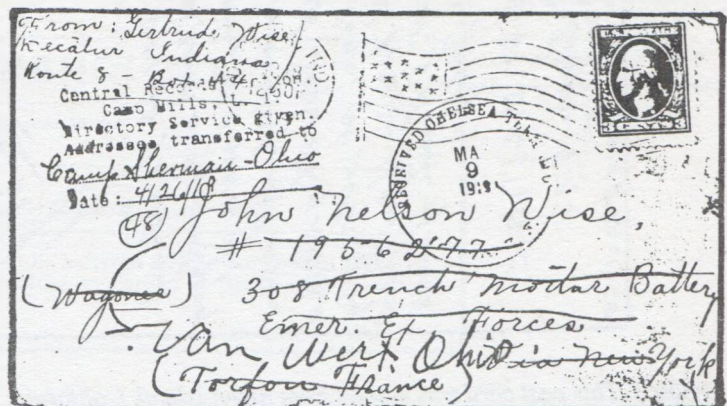 From: Gertrude Wise
Decatur Indiana
Route 8 - Box 44
Central Records
Camp Mills,
Directory Service given.
Addressee transferred to
Camp Sherman - Ohio
Date: 4/26/18
RECEIVED CHELSEA
MA
9
48
John Nelson Wise,
# 195627
(Wagoner) 308 Trench Mortar Battery
Emer. Ex. Forces
Van Wert Ohio via New York
(Torfou France)